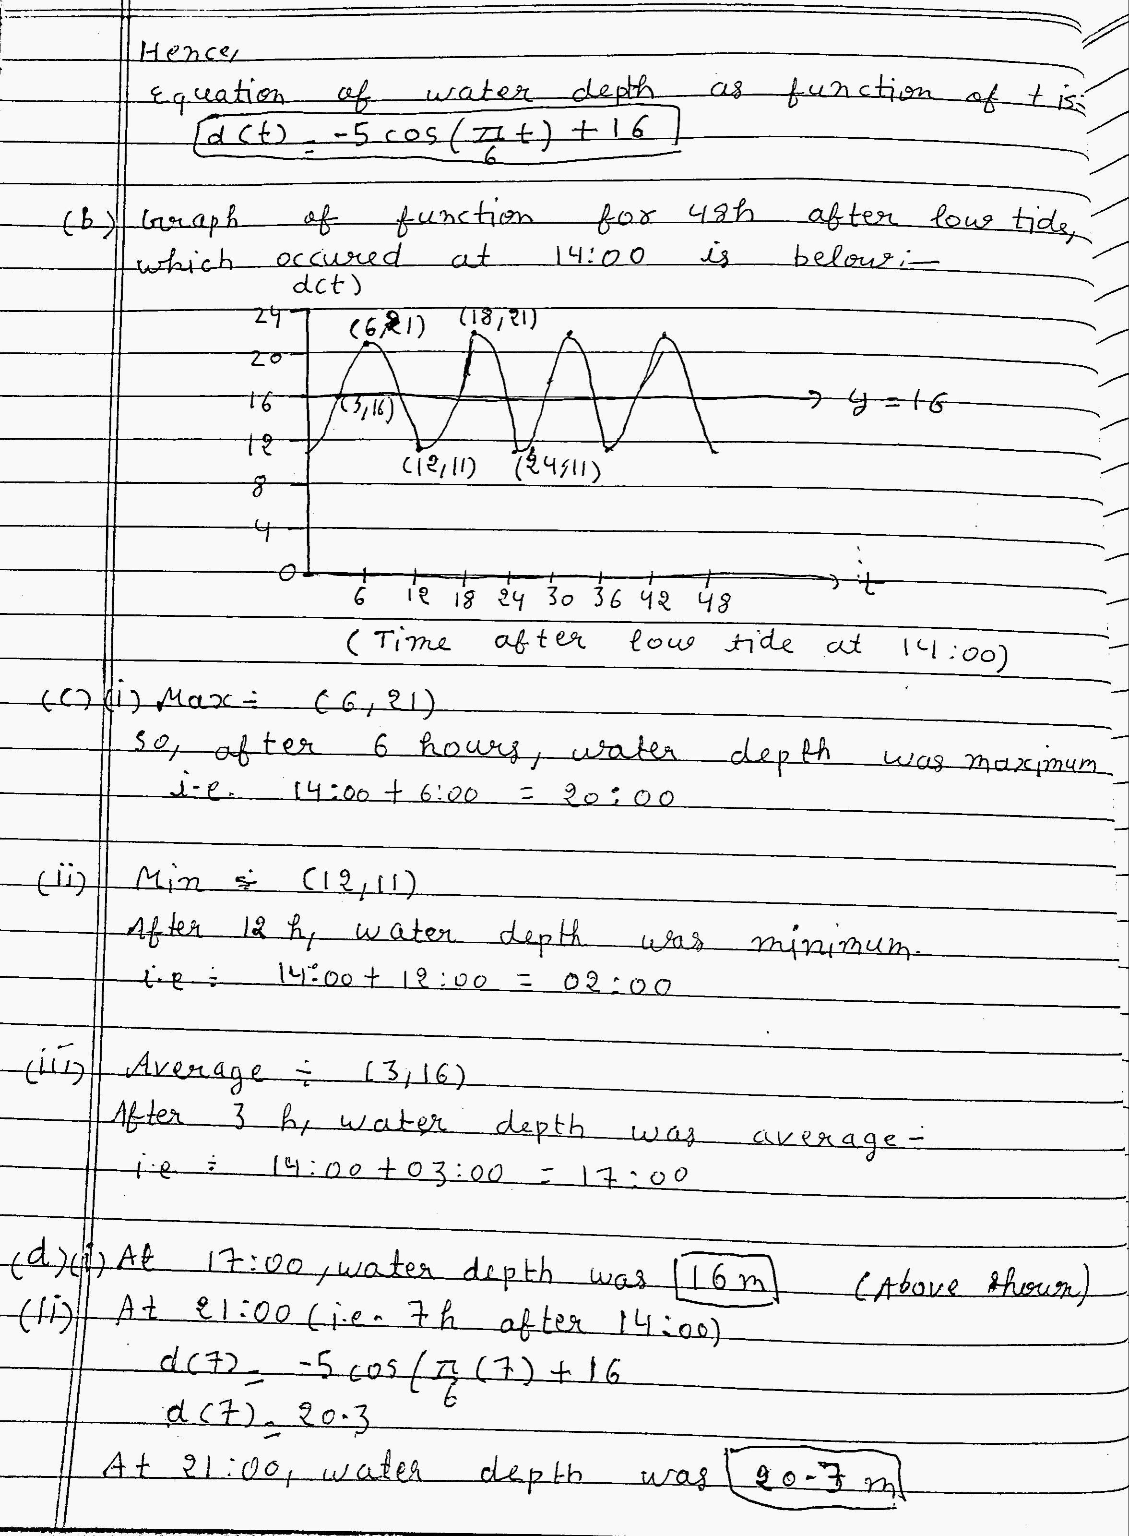 Hence,
Equation of water depth as function of t is:
d(t) = -5 cos(π/6 t) + 16
(b) Graph of function for 48h after low tide,
which occured at 14:00 is below:-
d(t)
24
(6,21) (18,21)
20
16 (3,16) → y = 16
12
(12,11) (24,11)
8
4
0 → t
6 12 18 24 30 36 42 48
(Time after low tide at 14:00)
(c) (i) Max ÷ (6,21)
so, after 6 hours, water depth was maximum
i.e. 14:00 + 6:00 = 20:00
(ii) Min ÷ (12,11)
After 12 h, water depth was minimum.
i.e ÷ 14:00 + 12:00 = 02:00
(iii) Average ÷ (3,16)
After 3 h, water depth was average-
i.e ÷ 14:00 + 03:00 = 17:00
(d) (i) At 17:00, water depth was 16 m (Above shown)
(ii) At 21:00 (i.e. 7h after 14:00)
d(7) = -5 cos(π/6 (7) + 16
d(7) = 20.3
At 21:00, water depth was 20.7 m